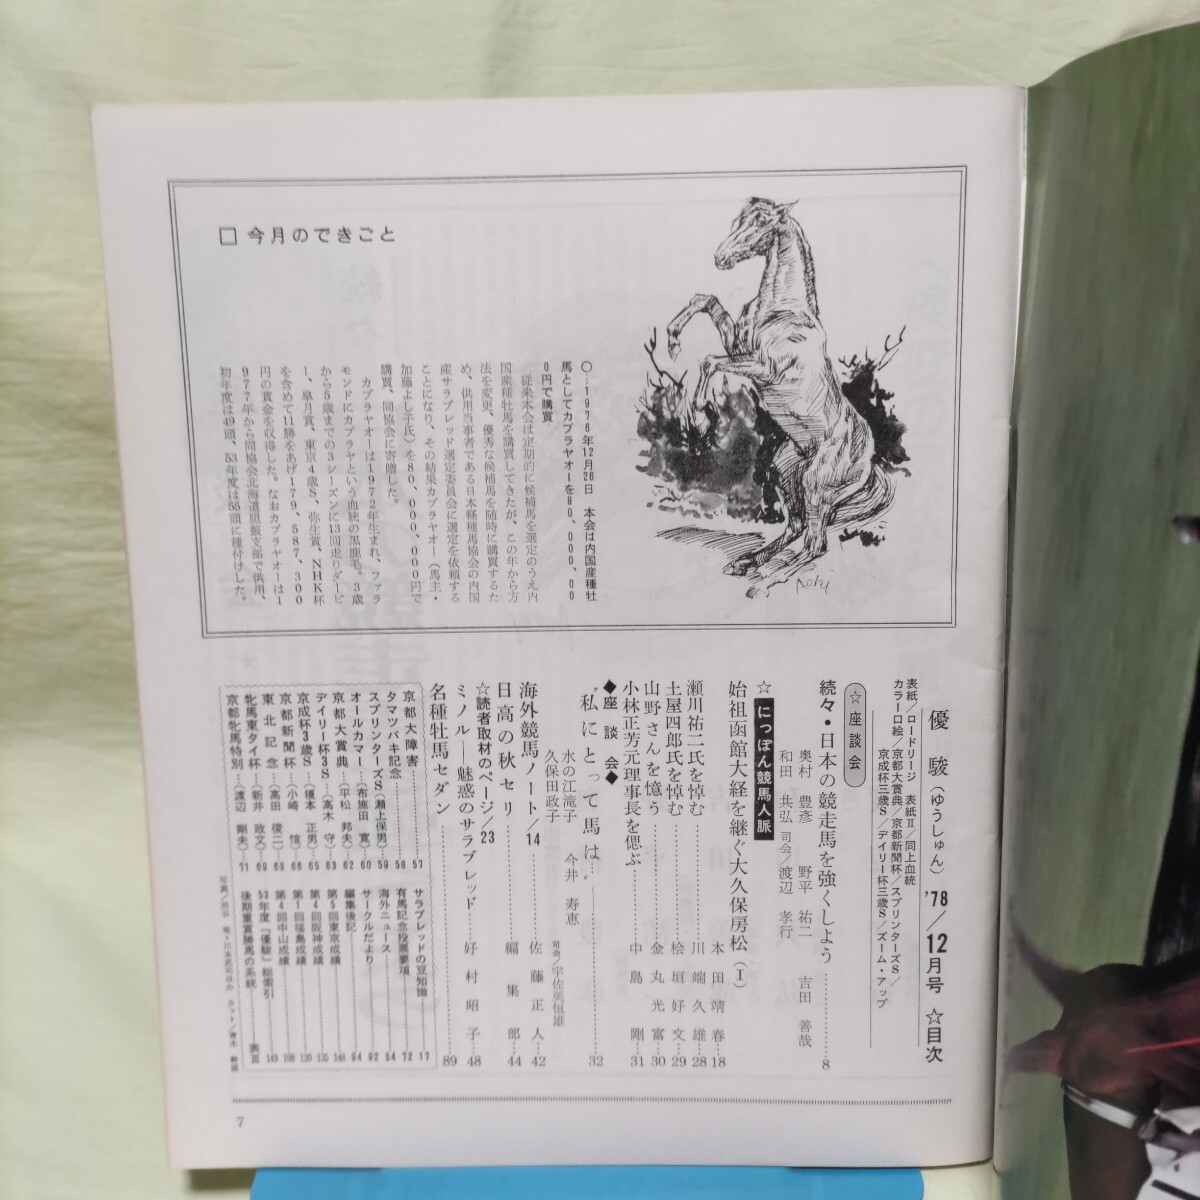 □ 今月のできごと
〇…1976年12月26日 本会は内国産種牡
馬としてカブラヤオーを80,000,00
0円で購買
従来本会は定期的に候補馬を選定のうえ内
国産種牡馬を購買してきたが、この年から方
法を変更、優秀な候補馬を随時に購買するた
め、供用当事者である日本軽種馬協会の内国
産サラブレッド選定委員会に選定を依頼する
ことになり、その結果カブラヤオー(馬主・
加藤よし子氏)を80,000,000円で
購買、同協会に寄贈した。
カブラヤオーは1972年生まれ、ファラ
モンドにカブラヤという血統の黒鹿毛。3歳
から5歳までの3シーズンに13回走りダービ
ー、皐月賞、東京4歳S、弥生賞、NHK杯
を含めて11勝をあげ179,587,300
円の賞金を収得した。なおカブラヤオーは1
977年から同協会北海道胆振支部で供用、
初年度は49頭、53年度は55頭に種付けした。
優駿(ゆうしゅん) '78/12月号 ☆目次
表紙/ロードリージ 表紙Ⅱ/同上血統
カラー口絵/京都大賞典/京都新聞杯/スプリンターズS/
京成杯三歳S/デイリー杯三歳S/ズーム・アップ
☆座談会
続々・日本の競走馬を強くしよう……8
奥村 豊彦 野平 祐二 吉田 善哉
和田 共弘 司会/渡辺 孝行
☆にっぽん競馬人脈
始祖函館大経を継ぐ大久保房松(Ⅰ) 本田靖春 18
瀬川祐二氏を悼む……川端久雄 28
土屋四郎氏を悼む……桧垣好文 29
山野さんを憶う……金丸光富 30
小林正芳元理事長を偲ぶ……中島 剛 31
◆座談会◆
"私にとって馬は……"……32
水の江滝子 今井 寿恵
久保田政子 司会/宇佐美恒雄
海外競馬ノート/14……佐藤正人 42
日高の秋セリ……編集部 44
☆読者取材のページ/23
ミノル―魅惑のサラブレッド……好村昭子 48
名種牡馬セダン……89
京都大障害……57
タマツバキ記念……58
スプリンターズS(瀬上保男) 59
オールカマー(布施田 寛) 60
京都大賞典(平松 邦夫) 62
デイリー杯3S(高木 守) 63
京成杯3歳S(榎本 正男) 65
京都新聞杯(小崎 愃) 66
東北記念(高田 俊二) 68
牝馬東タイ杯(新井 政文) 69
京都牝馬特別(渡辺 剛夫) 71
サラブレッドの豆知識 17
有馬記念投票要項 72
海外ニュース 54
サークルだより 92
編集後記 94
第5回東京成績 148
第4回阪神成績 135
第1回福島成績 120
第4回中山成績 106
53年度「優駿」総索引 149
後期重賞勝馬の系統 表Ⅲ
7